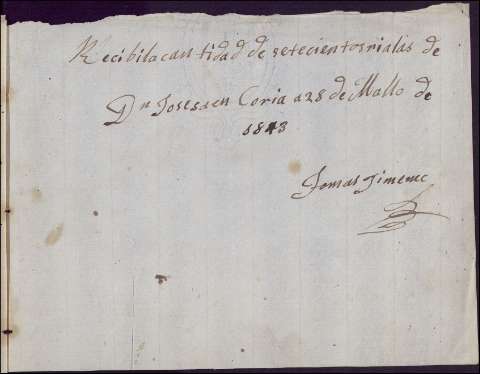 Recibilacan tidad de setecientosrialas de
Dn Josesaen Coria a 28 de Mallo de
1843
Tomas Jimenc